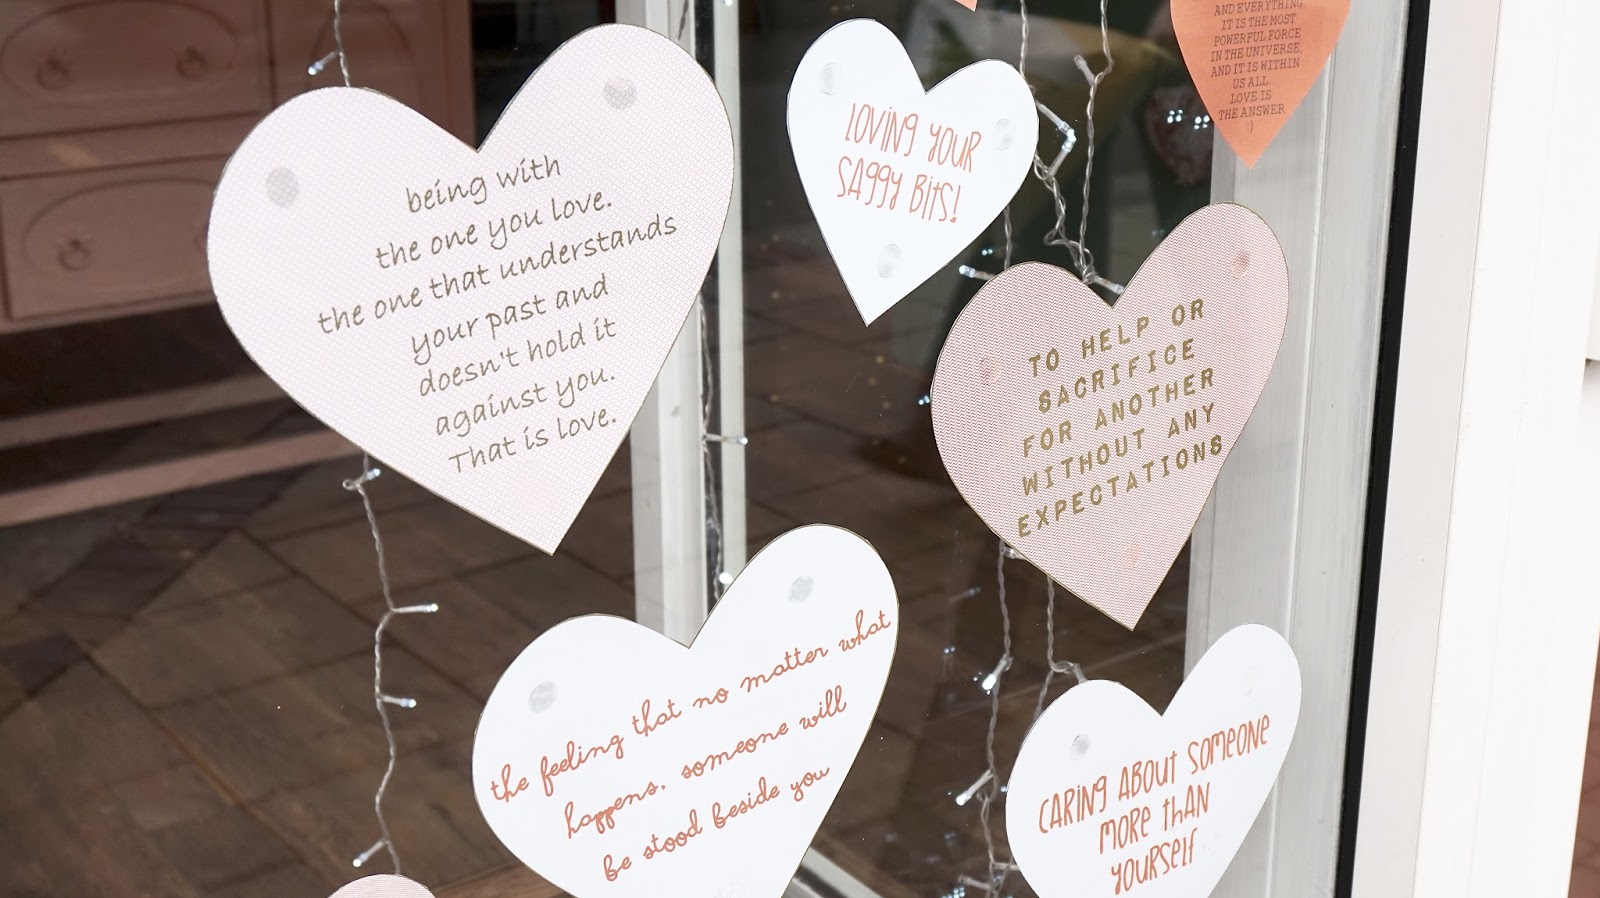 being with
the one you love.
the one that understands
your past and
doesn't hold it
against you.
That is love.
LOVING YOUR
SAGGY BITS!
AND EVERYTHING.
IT IS THE MOST
POWERFUL FORCE
IN THE UNIVERSE.
AND IT IS WITHIN
US ALL.
LOVE IS
THE ANSWER
:)
TO HELP OR
SACRIFICE
FOR ANOTHER
WITHOUT ANY
EXPECTATIONS
the feeling that no matter what
happens, someone will
be stood beside you
CARING ABOUT SOMEONE
MORE THAN
YOURSELF